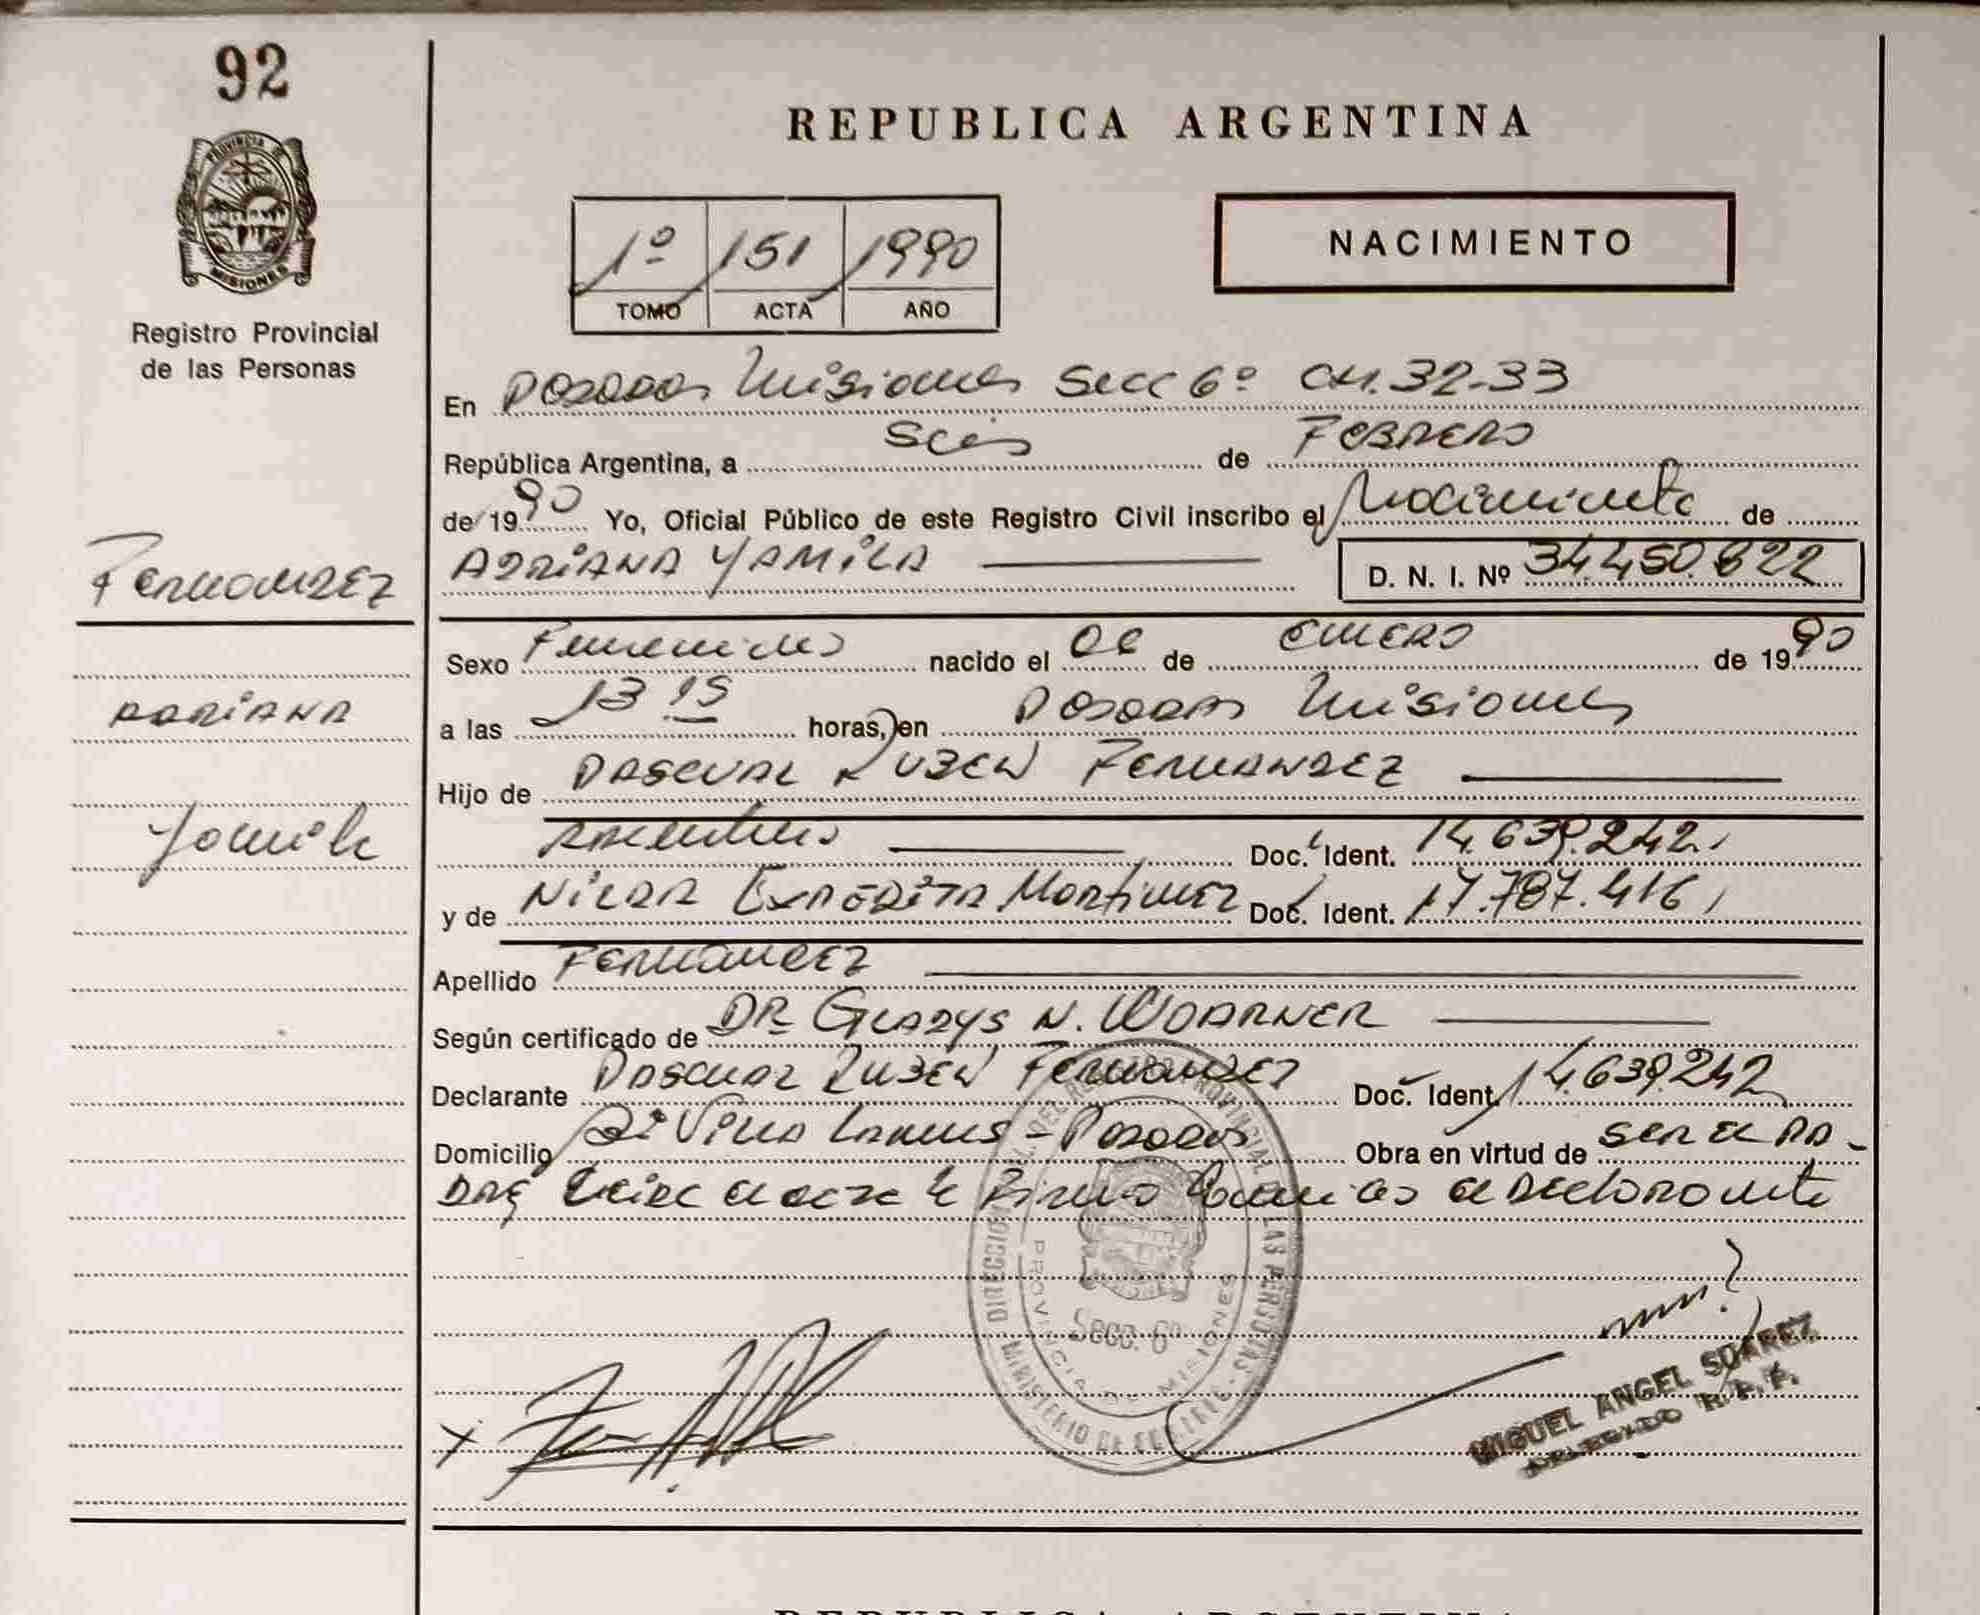 92
REPUBLICA ARGENTINA
PROVINCIA DE MISIONES
Registro Provincial
de las Personas
NACIMIENTO
1º 151 1990
TOMO ACTA AÑO
En Posadas Misiones Secc 6º 32-33
República Argentina, a Seis de FEBRERO
de 1990 Yo, Oficial Público de este Registro Civil inscribo el Nacimiento de
ADRIANA YAMILA D. N. I. Nº 34.450.822
Fernandez
Sexo Femenino nacido el de ENERO de 1990
ADRIANA
a las 13 15 horas, en Posadas Misiones
Hijo de PASCUAL RUBEN FERNANDEZ
Yamila
Argentino Doc. Ident. 14.639.242
y de Expedita Martinez Doc. Ident. 17.787.416
Apellido FERNANDEZ
Según certificado de DRª GLADYS N. WOARNER
Declarante PASCUAL RUBEN FERNANDEZ Doc. Ident. 14.639.242
Domicilio Villa Lanus - Posadas Obra en virtud de ser el PA-
DRE el acta declarante
DIRECCION GRAL. DEL REGISTRO PROVINCIAL DE LAS PERSONAS
PROVINCIA DE MISIONES
Secc. 6º
MINISTERIO DE
MIGUEL ANGEL SUAREZ
DELEGADO R. P. P.
REPUBLICA ARGENTINA